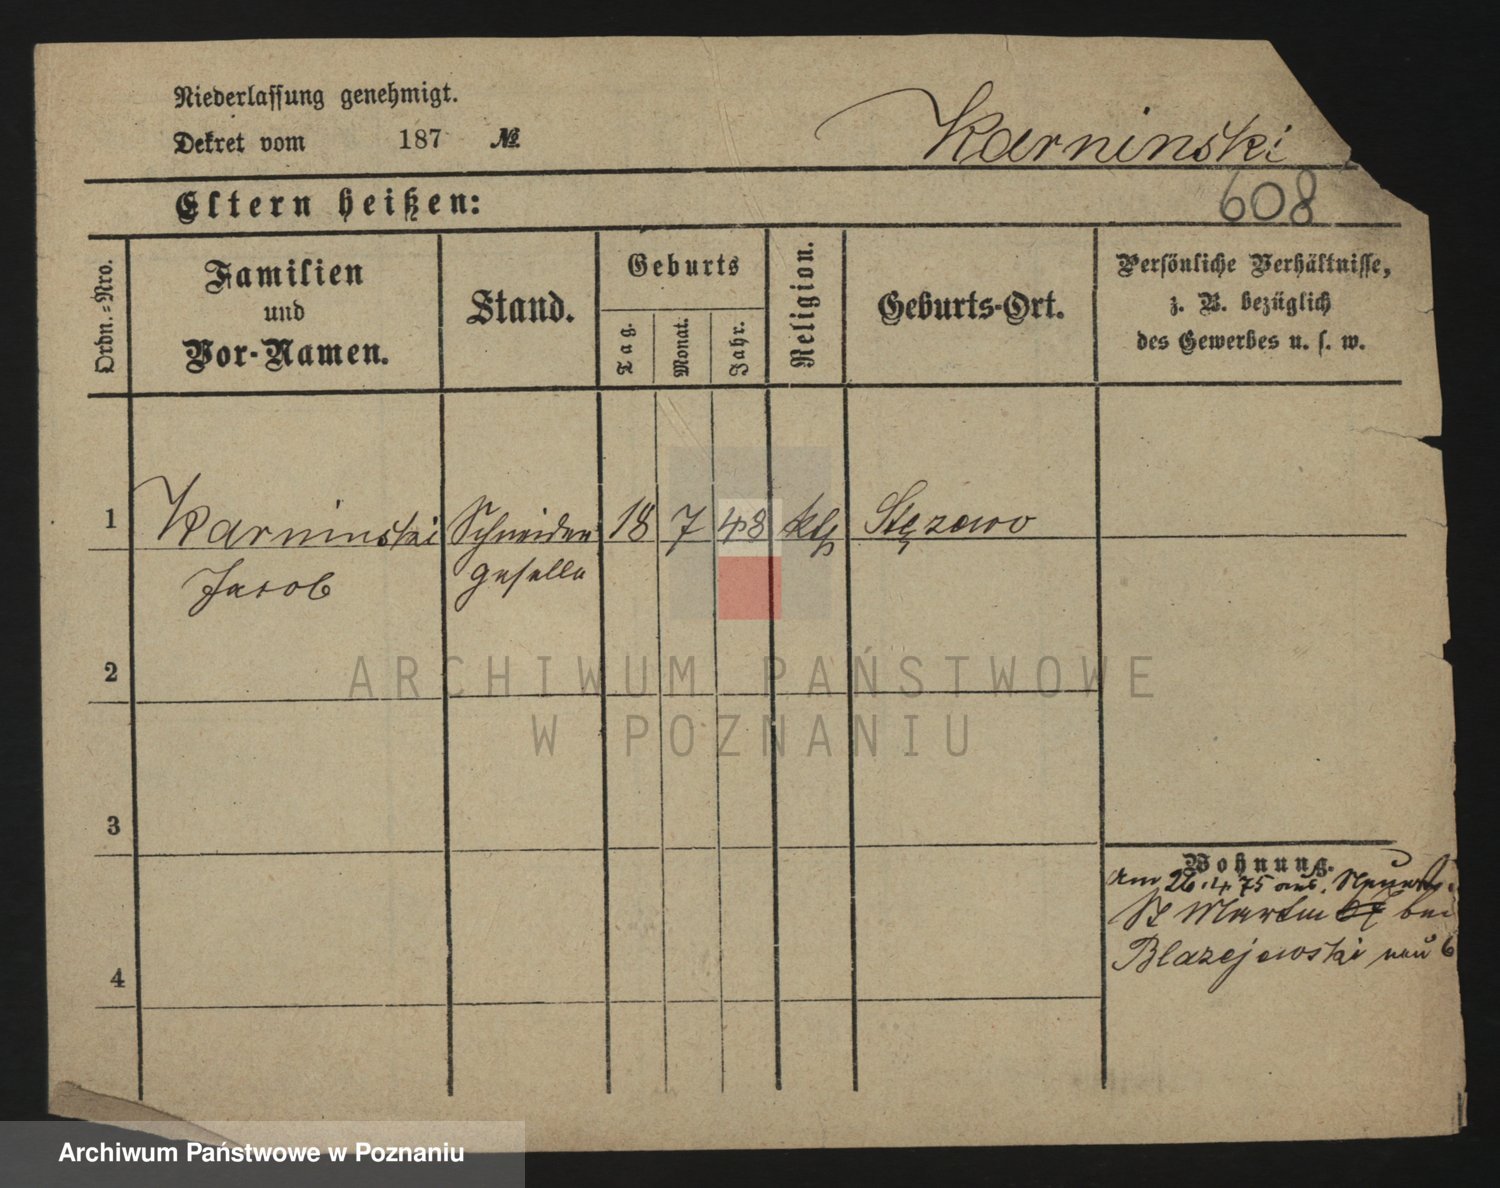 Niederlassung genehmigt.
Dekret vom 187 №
Karninski
608
Eltern heißen:
Ordn.-Nro.
Familien
und
Vor-Namen.
Stand.
Geburts
Tag.
Monat.
Jahr.
Religion.
Geburts-Ort.
Persönliche Verhältnisse,
z. B. bezüglich
des Gewerbes u. s. w.
1 Karninski Schneider 18 7 48 kth Stęzewo
Jacob geselle
2
3
4
Wohnung.
Am 26.4.75 aus
St Martin bei
Blazejewski neu 6
ARCHIWUM PAŃSTWOWE
W POZNANIU
Archiwum Państwowe w Poznaniu